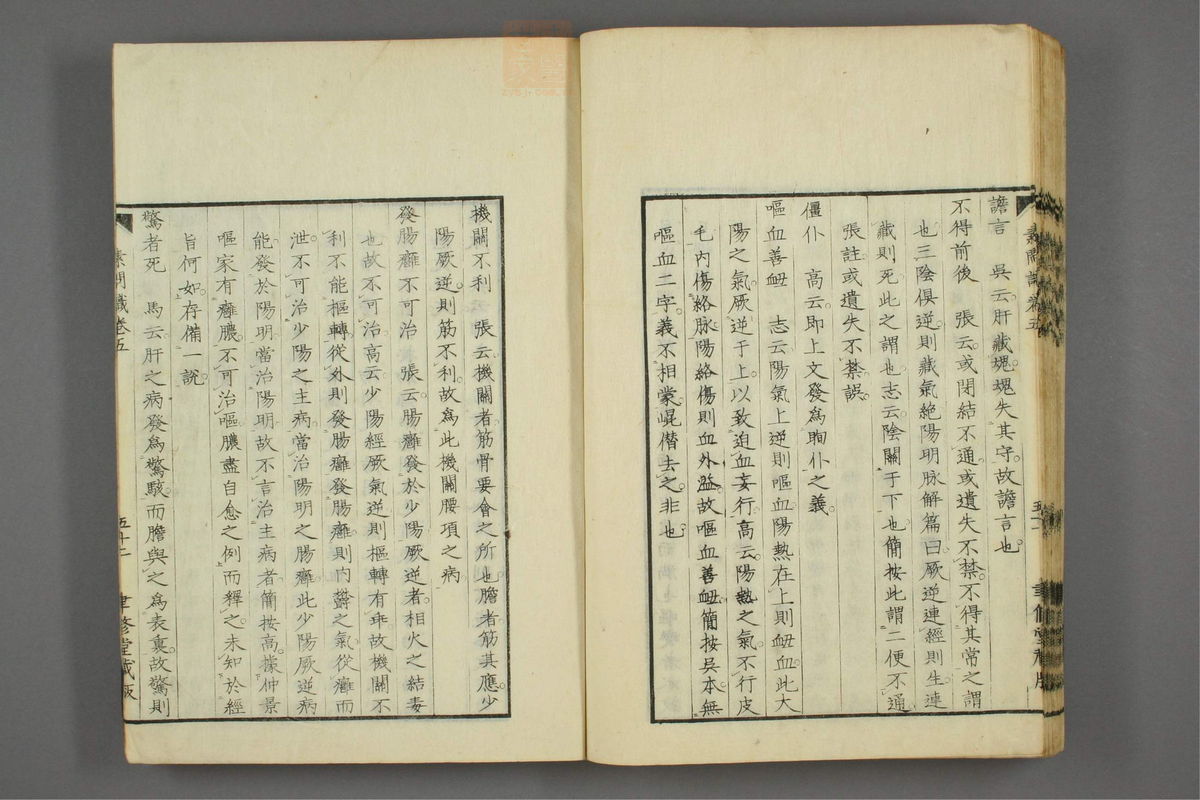 譫言　吳云肝藏䰟䰟失其守故譫言也
不得前後　張云或閉結不通或遺失不禁不得其常之謂
也三陰俱逆則藏氣絕陽明脉解篇曰厥逆連經則生連
藏則死此之謂也志云陰關于下也簡按此謂二便不通
張註或遺失不禁誤
僵仆　高云即上文發爲眴仆之義
嘔血善衄　志云陽氣上逆則嘔血陽熱在上則衄血此大
陽之氣厥逆于上以致迫血妄行高云陽熱之氣不行皮
毛內傷絡脉陽絡傷則血外溢故嘔血善衄簡按吳本無
嘔血二字義不相蒙崐僭去之非也
機關不利　張云機關者筋骨要會之所也膽者筋其應少
陽厥逆則筋不利故爲此機關腰項之病
發腸癰不可治　張云腸癰發於少陽厥逆者相火之結毒
也故不可治高云少陽經厥氣逆則樞轉有乖故機關不
利不能樞轉從外則發腸癰發腸癰則內鬱之氣從癰而
泄不可治少陽之主病當治陽明之腸癰此少陽厥逆病
能發於陽明當治陽明故不言治主病者簡按高據仲景
嘔家有癰膿不可治嘔膿盡自愈之例而釋之未知於經
旨何如存備一說
驚者死　馬云肝之病發爲驚駭而膽與之爲表裏故驚則
素問識卷五　五十二　聿修堂藏版